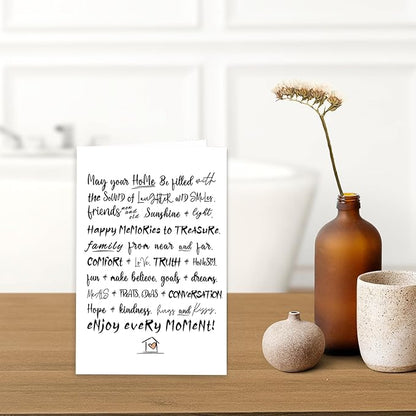 May your HoMe Be filled with
the SoUND of LaUGHTER aND SMiLes.
friends new and old Sunshine + light.
Happy MeMORies to TReaSuRe.
family from near and far.
COMFORT + LoVe. TRUTH + HoNeSTY.
fun + make believe, goals + dreams.
MeaLS + TReaTS, IDeaS + CONVeRSaTION
Hope + kindness. hugs and kisses.
eNjoy eveRy MoMeNt!